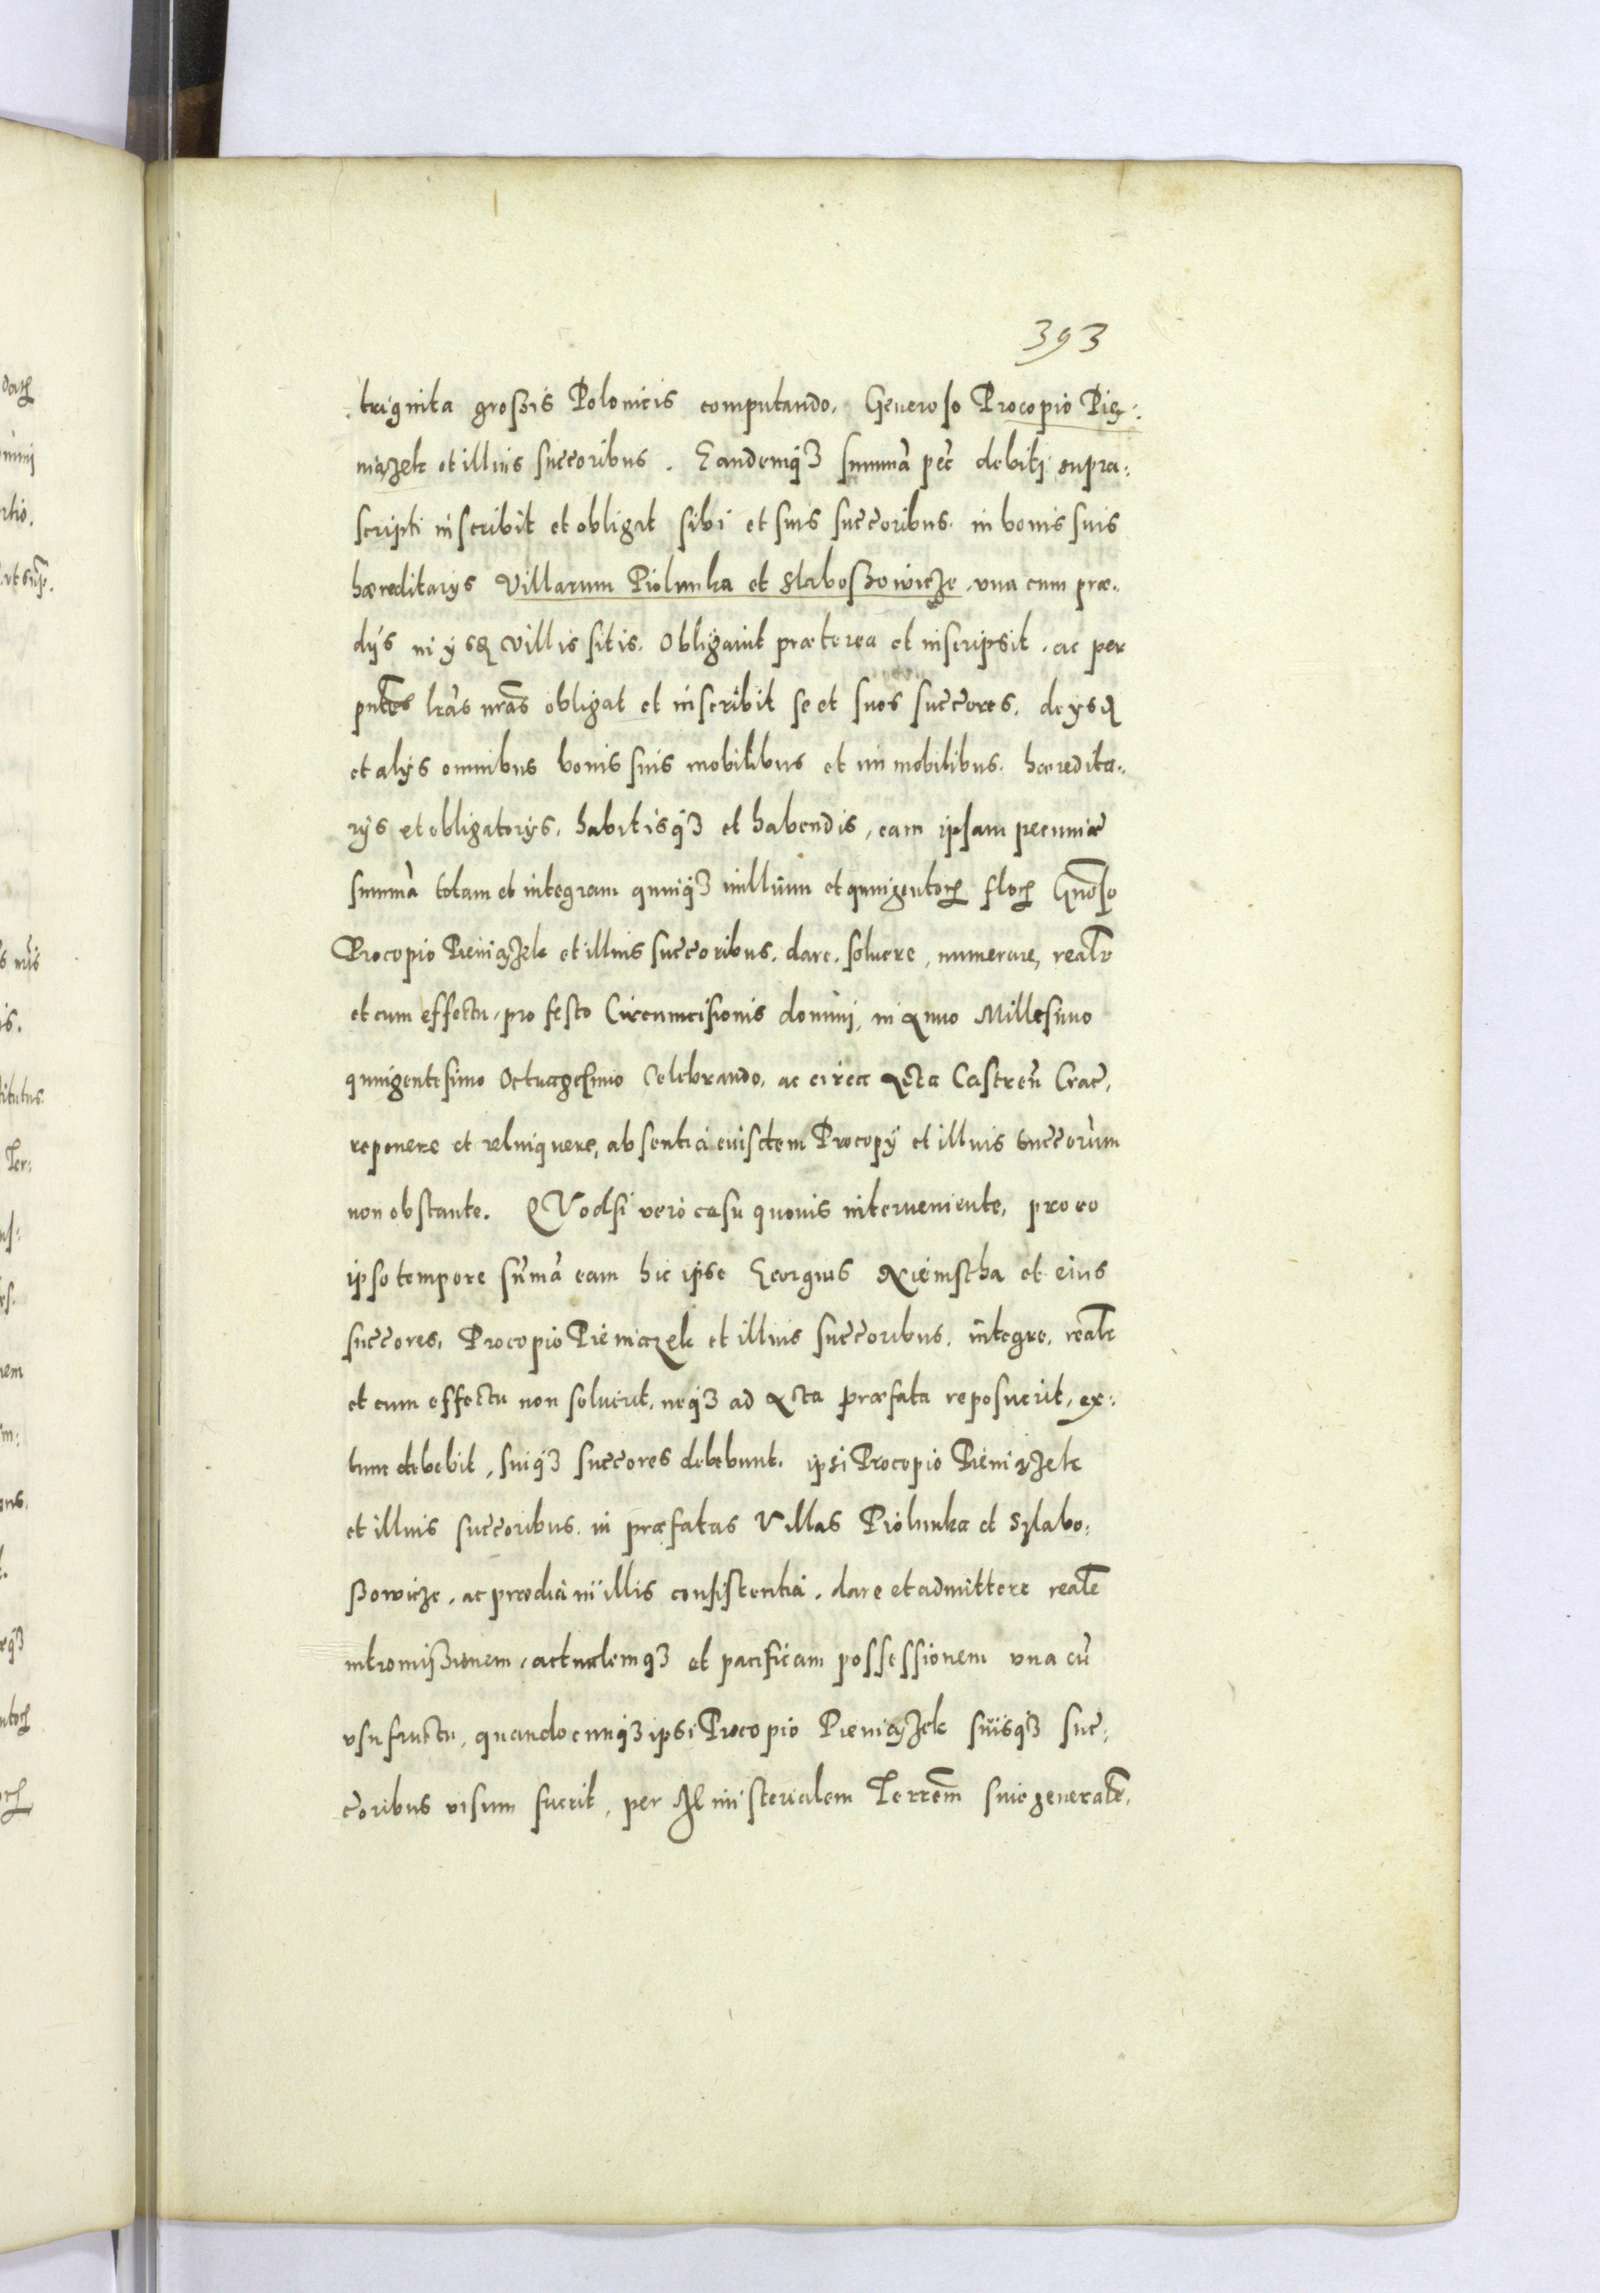 393
triginta großis Polonicis computando. Generoso Procopio Pie-
niązek et illius succoribus. Eandemq3 summā pec̄ debiti supra-
scripti inscribit et obligat sibi et suis succoribus in bonis suis
hæreditarijs Villarum Piolunka et Slaboßowicze, vna cum præ-
dijs in ijsdē villis sitis. Obligauit præterea et inscripsit, ac per
pntes lras nras obligat et inscribit se et suos succores, de ijsdē
et alijs omnibus bonis suis mobilibus et immobilibus hæredita-
rijs et obligatorijs, habitisq3 et habendis, eam ipsam pecuniæ
summā totam et integram quinq3 millium et quingentoꝝ floꝝ Gnoso
Procopio Pieniązek et illius succoribus, dare, soluere, numerare, realr
et cum effectu, pro festo Circumcisionis domini, in Anno Millesimo
quingentesimo Octuagesimo Celebrando, ac circa Acta Castreñ Crac,
reponere et relinquere, absentia eiusdem Procopij et illius succorum
non obstante. QVodsi vero casu quouis interueniente, pro eo
ipso tempore summā eam hic ipse Georgius Niemstha et eius
succores, Procopio Pieniazek et illius succoribus, integre, realr
et cum effectu non soluerit, neq3 ad Acta præfata reposuerit, ex-
tunc debebit, suiq3 succores debebunt, ipsi Procopio Pieniązek
et illius succoribus in præfatas Villas Piolunka et Szlabo-
ßowicze, ac prædia in illis consistentia, dare et admittere realē
intromißionem, actualemq3 et pacificam possessionem vna cū
vsufructu, quandocunq3 ipsi Procopio Pieniązek suisq3 suc-
coribus visum fuerit, per Ministerialem Terrem̄ siue generalē,